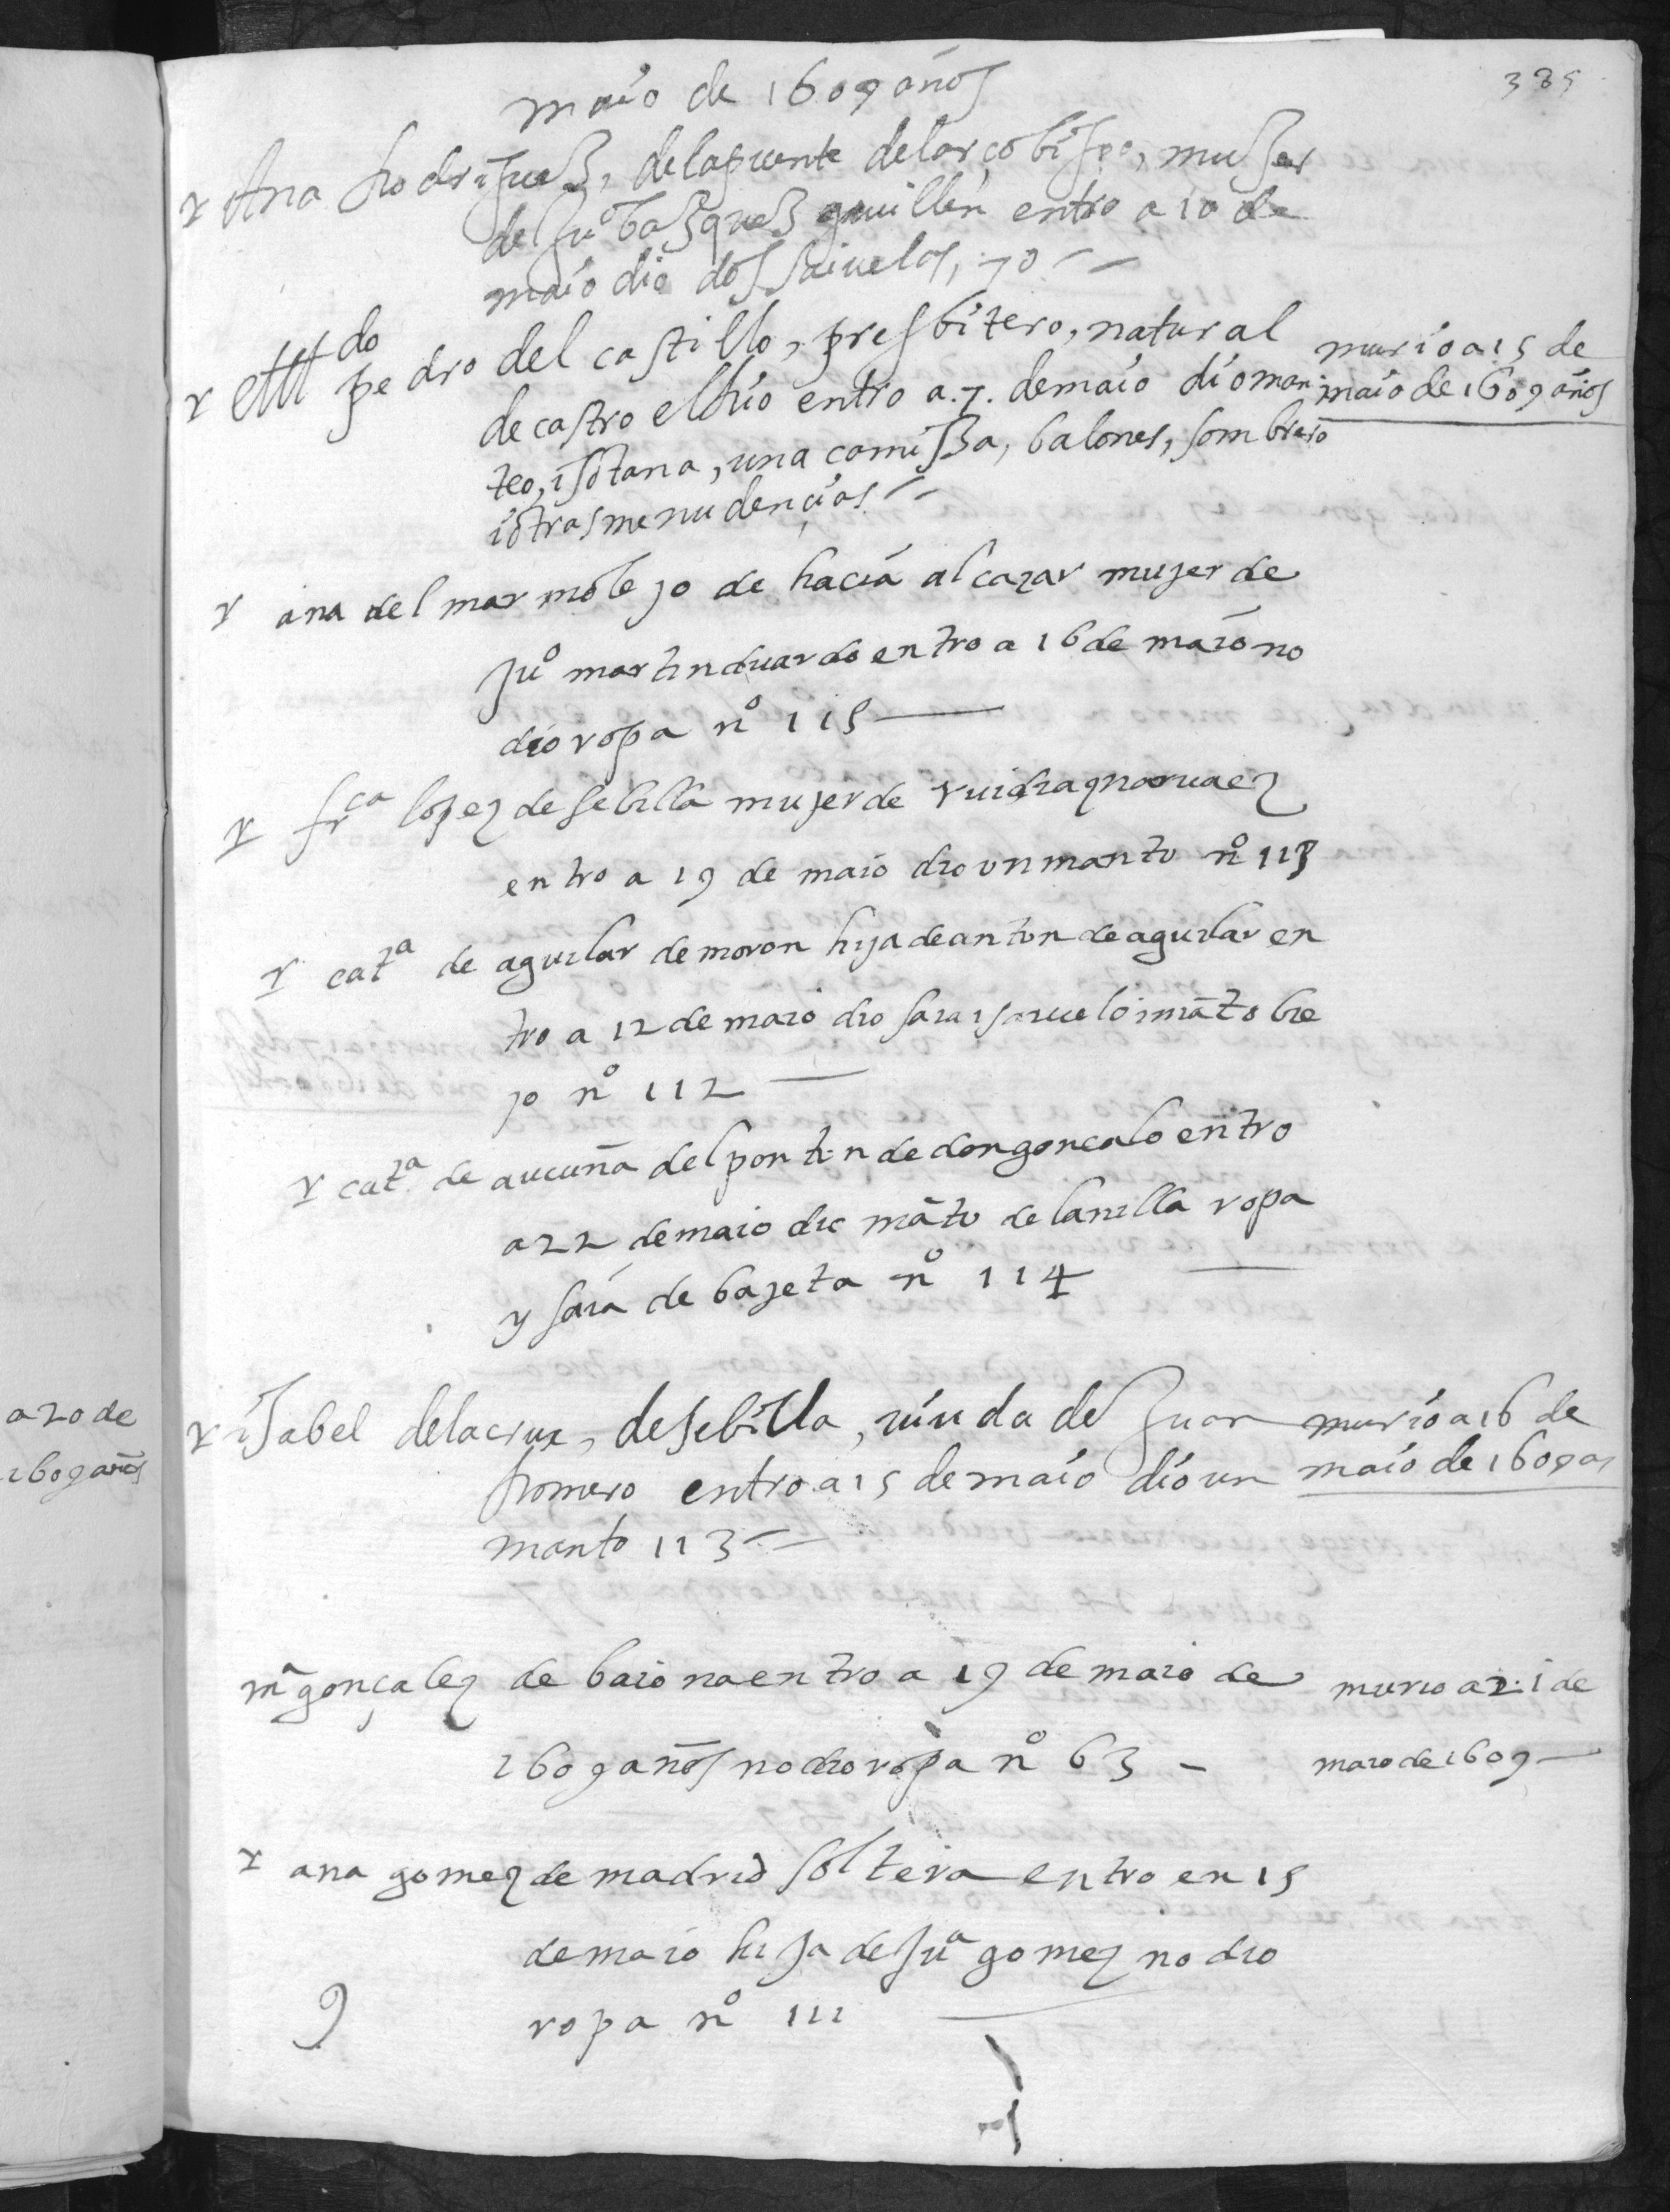 maio de 1609 años
385
r Ana Rodriguez, de la puente del arçobispo, muger
de Juº bazquez guillen entro a 10 de
maio dio dos saiuelos, 70
r el ldo pedro del castillo, presbitero, natural
de castro el Rio entro a .7. de maio dio man
teo, i sotana, una camissa, balones, sombrero
i otras menudençias
murio a 15 de
maio de 1609 años
r ana del marmolejo de hacia alcazar mujer de
juº martin duardo entro a 16 de maio no
dio ropa nº 115
r frca lopez de sebilla mujer de rui diaz naruaez
entro a 19 de maio dio un manto nº 115
r catª de aguilar de moron hija de anton de aguilar en
tro a 12 de maio dio saia i saiuelo i mãto bie
jo nº 112
r catª de aucuña del ponton de don gonçalo entro
a 22 de maio dio mãto de lanilla ropa
y saia de bajeta nº 114
r isabel de la crux, de sebilla, uiuda de Juan
Romero entro a 15 de maio dio un
manto 113
murio a 16 de
maio de 1609 as
mª gonçalez de baiona entro a 19 de maio de
1609 años no dio ropa nº 63
murio a 21 de
maio de 1609
r ana gomez de madrid soltera entro en 15
de maio hija de juª gomez no dio
ropa nº 111
9
a 20 de
1609 años